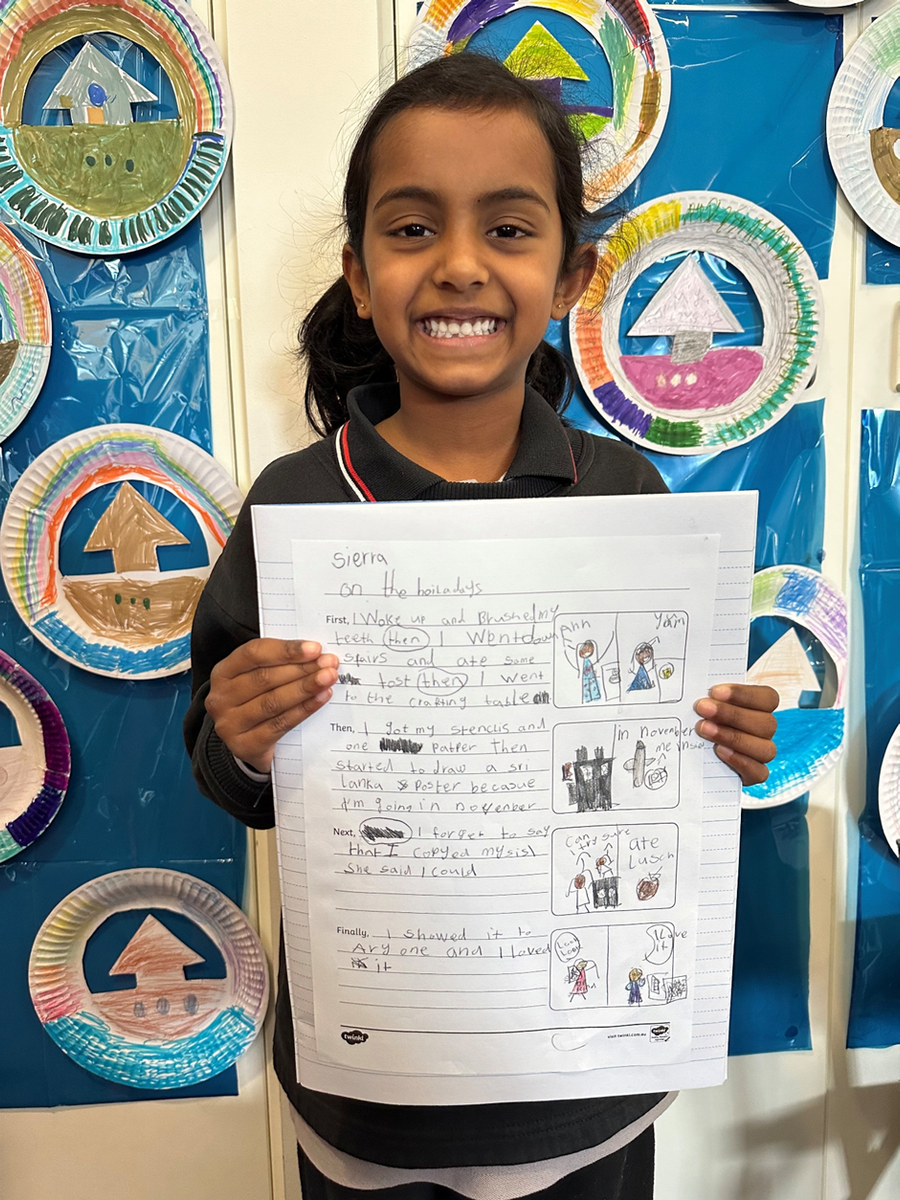 Sierra
on the hoiladays
First, I Woke up and Brushed my
teeth then I Went down
stairs and ate some
tost then I went
to the crafting table
Ahh
Yam
Then, I got my stencils and
one Patper then
started to draw a sri
lanka Poster becasue
I'm going in november
in november
me
Next, I forget to say
that I copyed my sis
She said I could
can I
try
sure
ate
Lusch
Finally, I showed it to
Avy one and I loved
it
Look
Look
I Love
it
twinkl
visit twinkl.com.au
twinkl